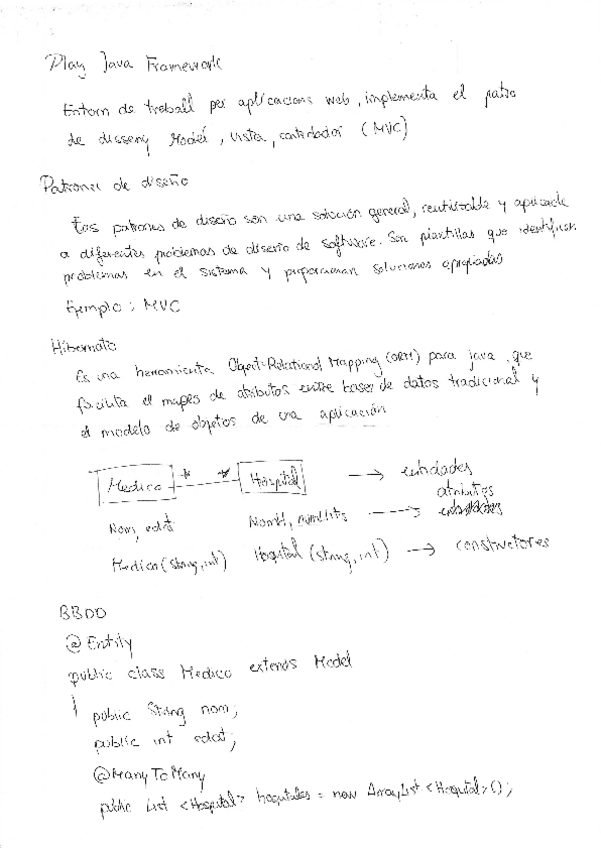 Play Java Framework
Entorn de treball per aplicacions web, implementa el patro
de disseny Model, Vista, controlador (MVC)
Patrones de diseño
Los patrones de diseño son una solución general, reutilizable y aplicable
a diferentes problemas de diseño de software. Son plantillas que identifican
problemas en el sistema y proporcionan soluciones apropiadas
Ejemplo: MVC
Hibernate
Es una herramienta Object-Relational Mapping (ORM) para java, que
facilita el mapeo de atributos entre bases de datos tradicional y
el modelo de objetos de una aplicación
Medico * * Hospital → entidades
atributos
Nom, edat NomH, numllits →
Medico (String, int) Hospital (string, int) → constructores
BBDD
@Entity
public class Medico extends Model
{ public String nom;
public int edat;
@ManyToMany
public List <Hospital> hospitales = new ArrayList <Hospital>();